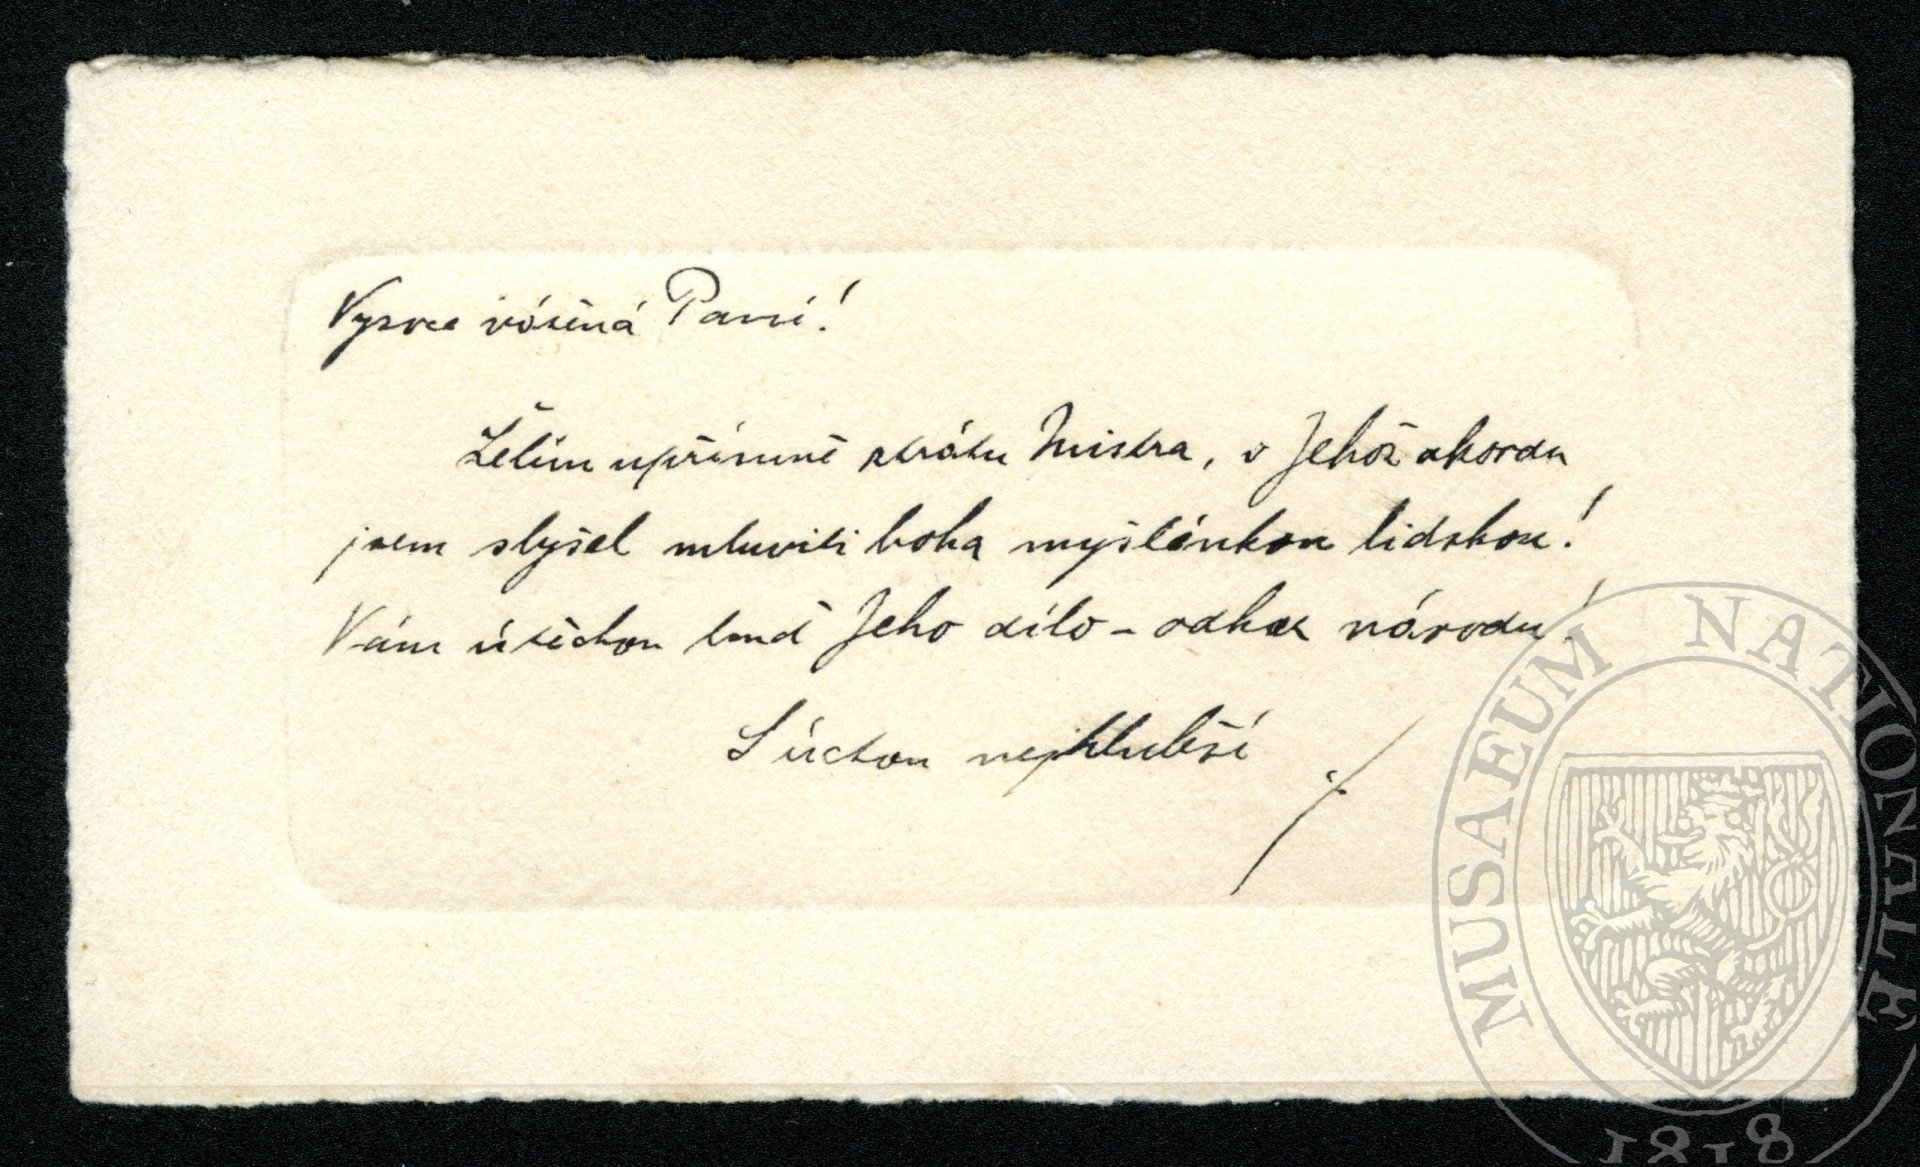 Vysoce vážená Paní!
Želím upřímně ztráty Mistra, v Jehož akordu
jsem slyšel mluviti boha myšlénkou lidskou!
Vám útěchou buď Jeho dílo – odkaz národu!
S úctou nejhlubší
MUSAEUM NATIONALE
1818